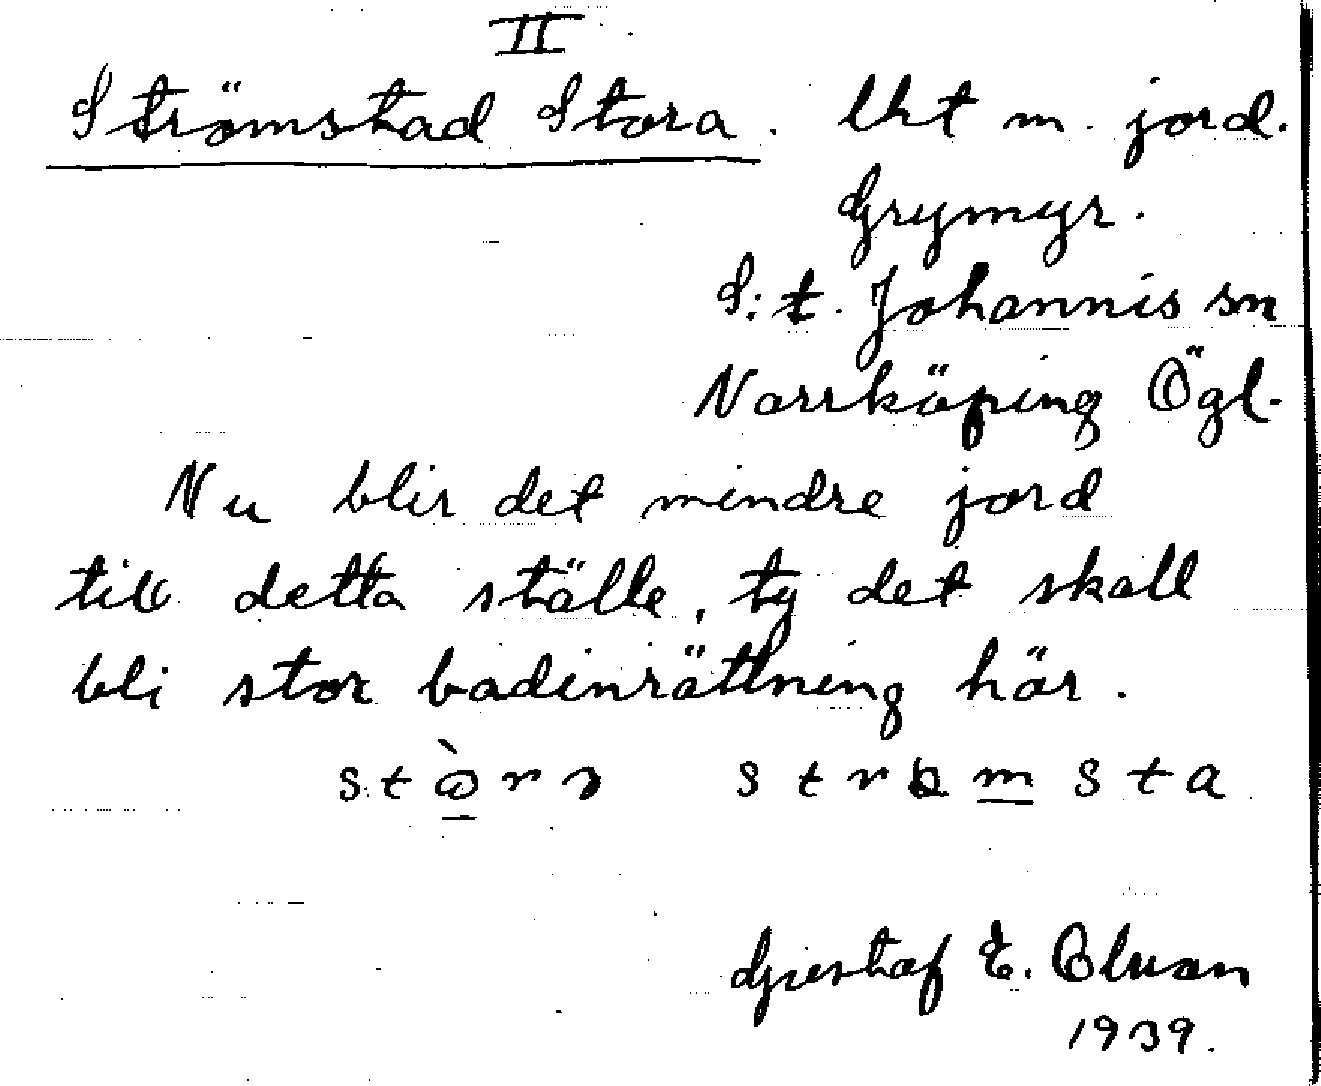 II
Strömstad Stora. lht m. jord.
Grymyr.
S:t. Johannis sn
Norrköping Ögl.
Nu blir det mindre jord
till detta ställe, ty det skall
bli stor badinrättning här.
Gustaf E. Olsson
1939.